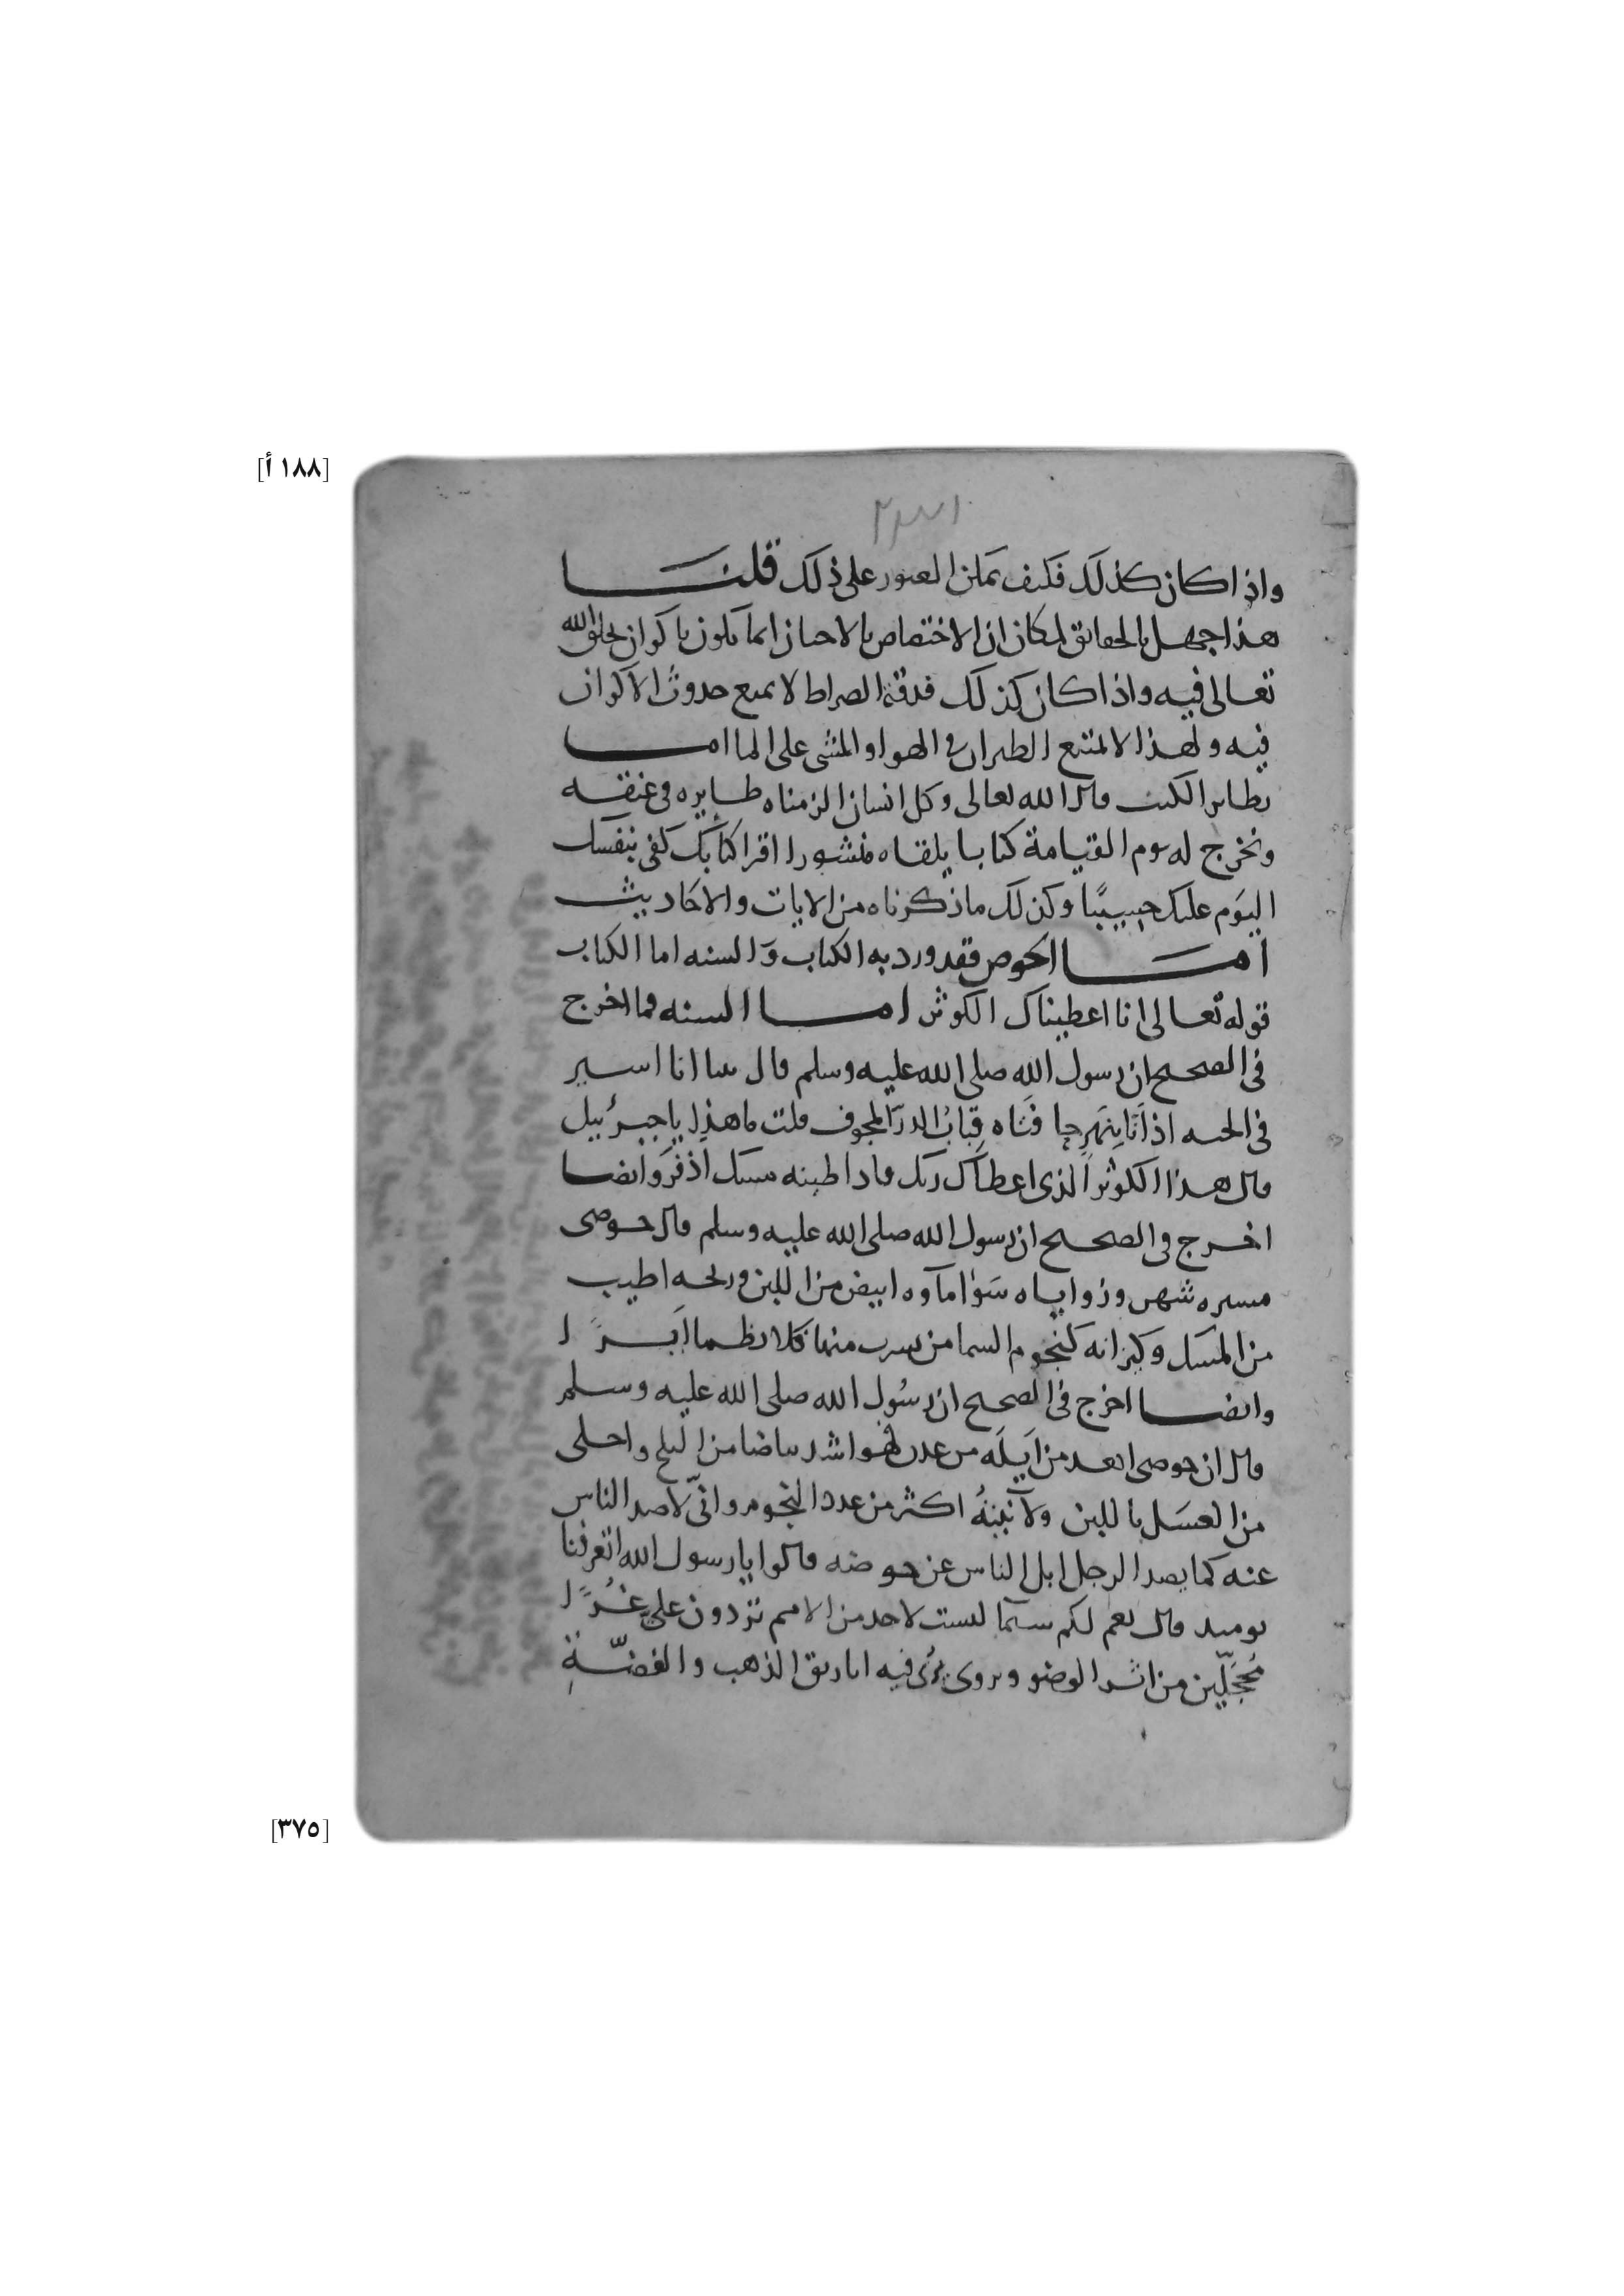 [١٨٨ أ]
واذا كان كذلك فكيف يمكن العبور على ذلك قلنا
هذا جهل بالحقائق لمكان ان الاختصاص بالاحياز انما يكون باكوان يخلق الله
تعالى فيه واذا كان كذلك فدقة الصراط لا يمنع حدوث الاكوان
فيه ولهذا لا يمتنع الطيران في الهوا والمشي على الما اما
تطاير الكتب قال الله تعالى وكل انسان الزمناه طايره في عنقه
ونخرج له يوم القيامة كتابا يلقاه منشورا اقرا كتابك كفى بنفسك
اليوم عليك حسيبا وكذلك ما ذكرناه من الايات والاحاديث
اما الحوض فقد ورد به الكتاب والسنه اما الكتاب
قوله تعالى انا اعطيناك الكوثر اما السنه فما اخرج
في الصحيح ان رسول الله صلى الله عليه وسلم قال بينا انا اسير
في الجنه اذ انا بنهر حافتاه قباب الدر المجوف قلت ما هذا يا جبرئيل
قال هذا الكوثر الذي اعطاك ربك فاذا طينه مسك اذفر وايضا
اخرج في الصحيح ان رسول الله صلى الله عليه وسلم قال حوضي
مسيره شهر وزواياه سوا ماوه ابيض من اللبن وريحه اطيب
من المسك وكيزانه كنجوم السما من يشرب منها فلا يظما ابدا
وايضا اخرج في الصحيح ان رسول الله صلى الله عليه وسلم
قال ان حوضي ابعد من ايله من عدن لهو اشد بياضا من الثلج واحلى
من العسل باللبن ولآنيته اكثر من عدد النجوم واني لاصد الناس
عنه كما يصد الرجل ابل الناس عن حوضه قالوا يا رسول الله اتعرفنا
يوميذ قال نعم لكم سيما ليست لاحد من الامم تردون علي غرا
محجلين من اثر الوضو ويروى يرى فيه اباريق الذهب والفضة
[٣٧٥]